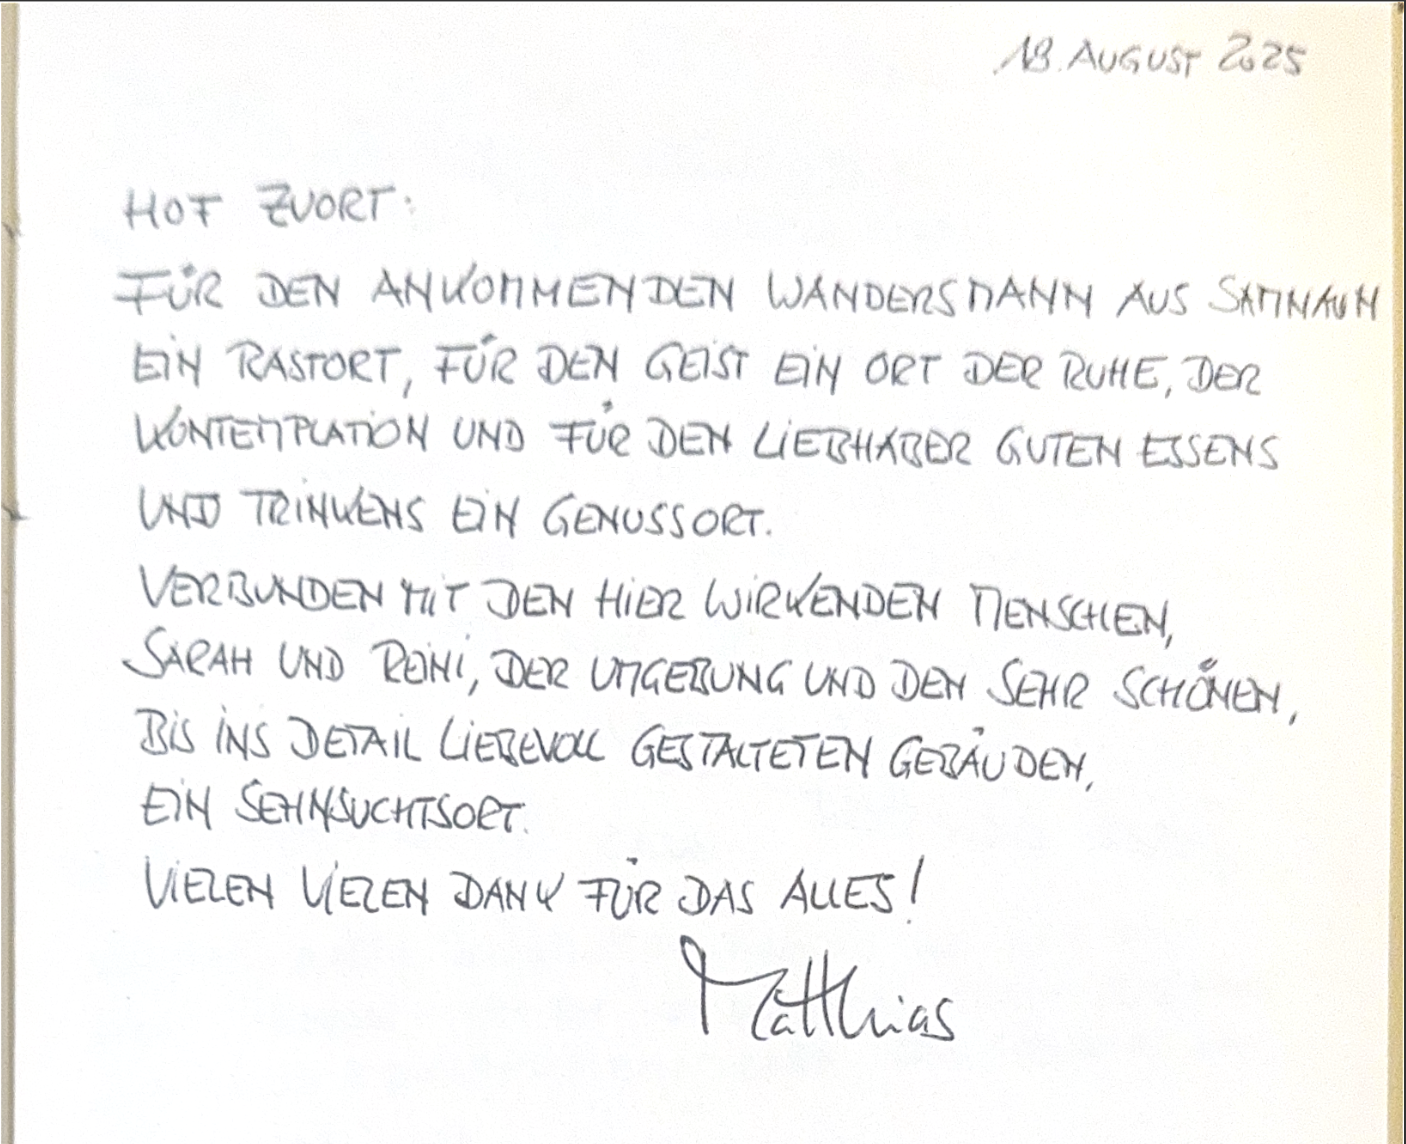 18. AUGUST 2025
HOF ZUORT:
FÜR DEN ANKOMMENDEN WANDERSMANN AUS SAMNAUN
EIN RASTORT, FÜR DEN GEIST EIN ORT DER RUHE, DER
KONTEMPLATION UND FÜR DEN LIEBHABER GUTEN ESSENS
UND TRINKENS EIN GENUSSORT.
VERBUNDEN MIT DEN HIER WIRKENDEN MENSCHEN,
SARAH UND REINI, DER UMGEBUNG UND DEN SEHR SCHÖNEN,
BIS INS DETAIL LIEBEVOLL GESTALTETEN GEBÄUDEN,
EIN SEHNSUCHTSORT.
VIELEN VIELEN DANK FÜR DAS ALLES!
Matthias